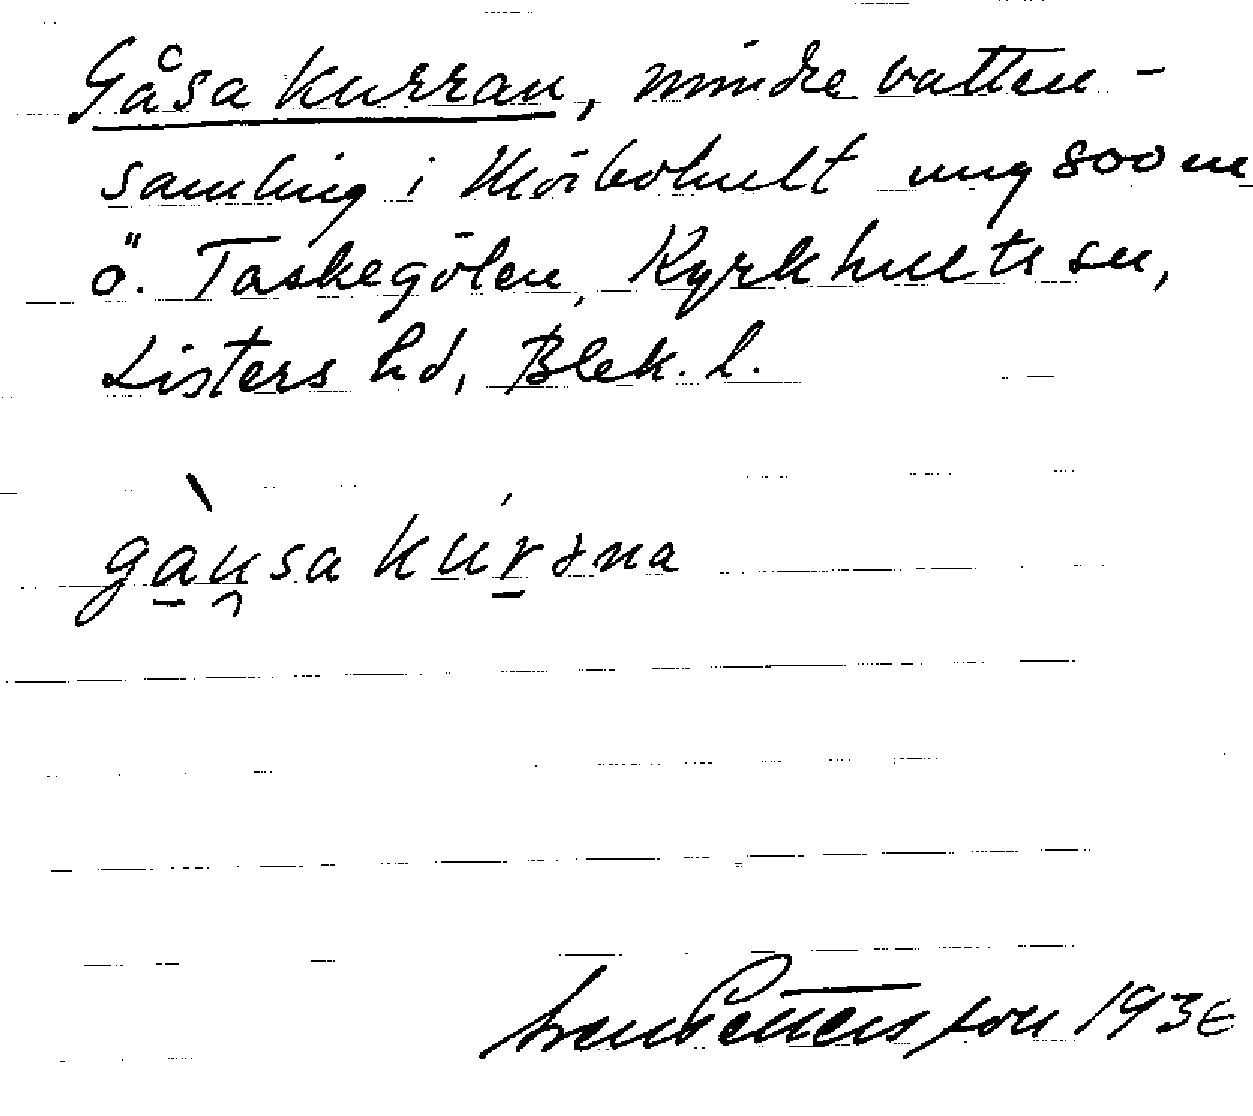 Gåsa kurran, mindre vatten-
samling i Möibohult ung 800 m
ö. Taskegölen, Kyrkhults sn,
Listers hd, Blek. l.
gàu̯sa kúrəna
Sven Pettersson 193